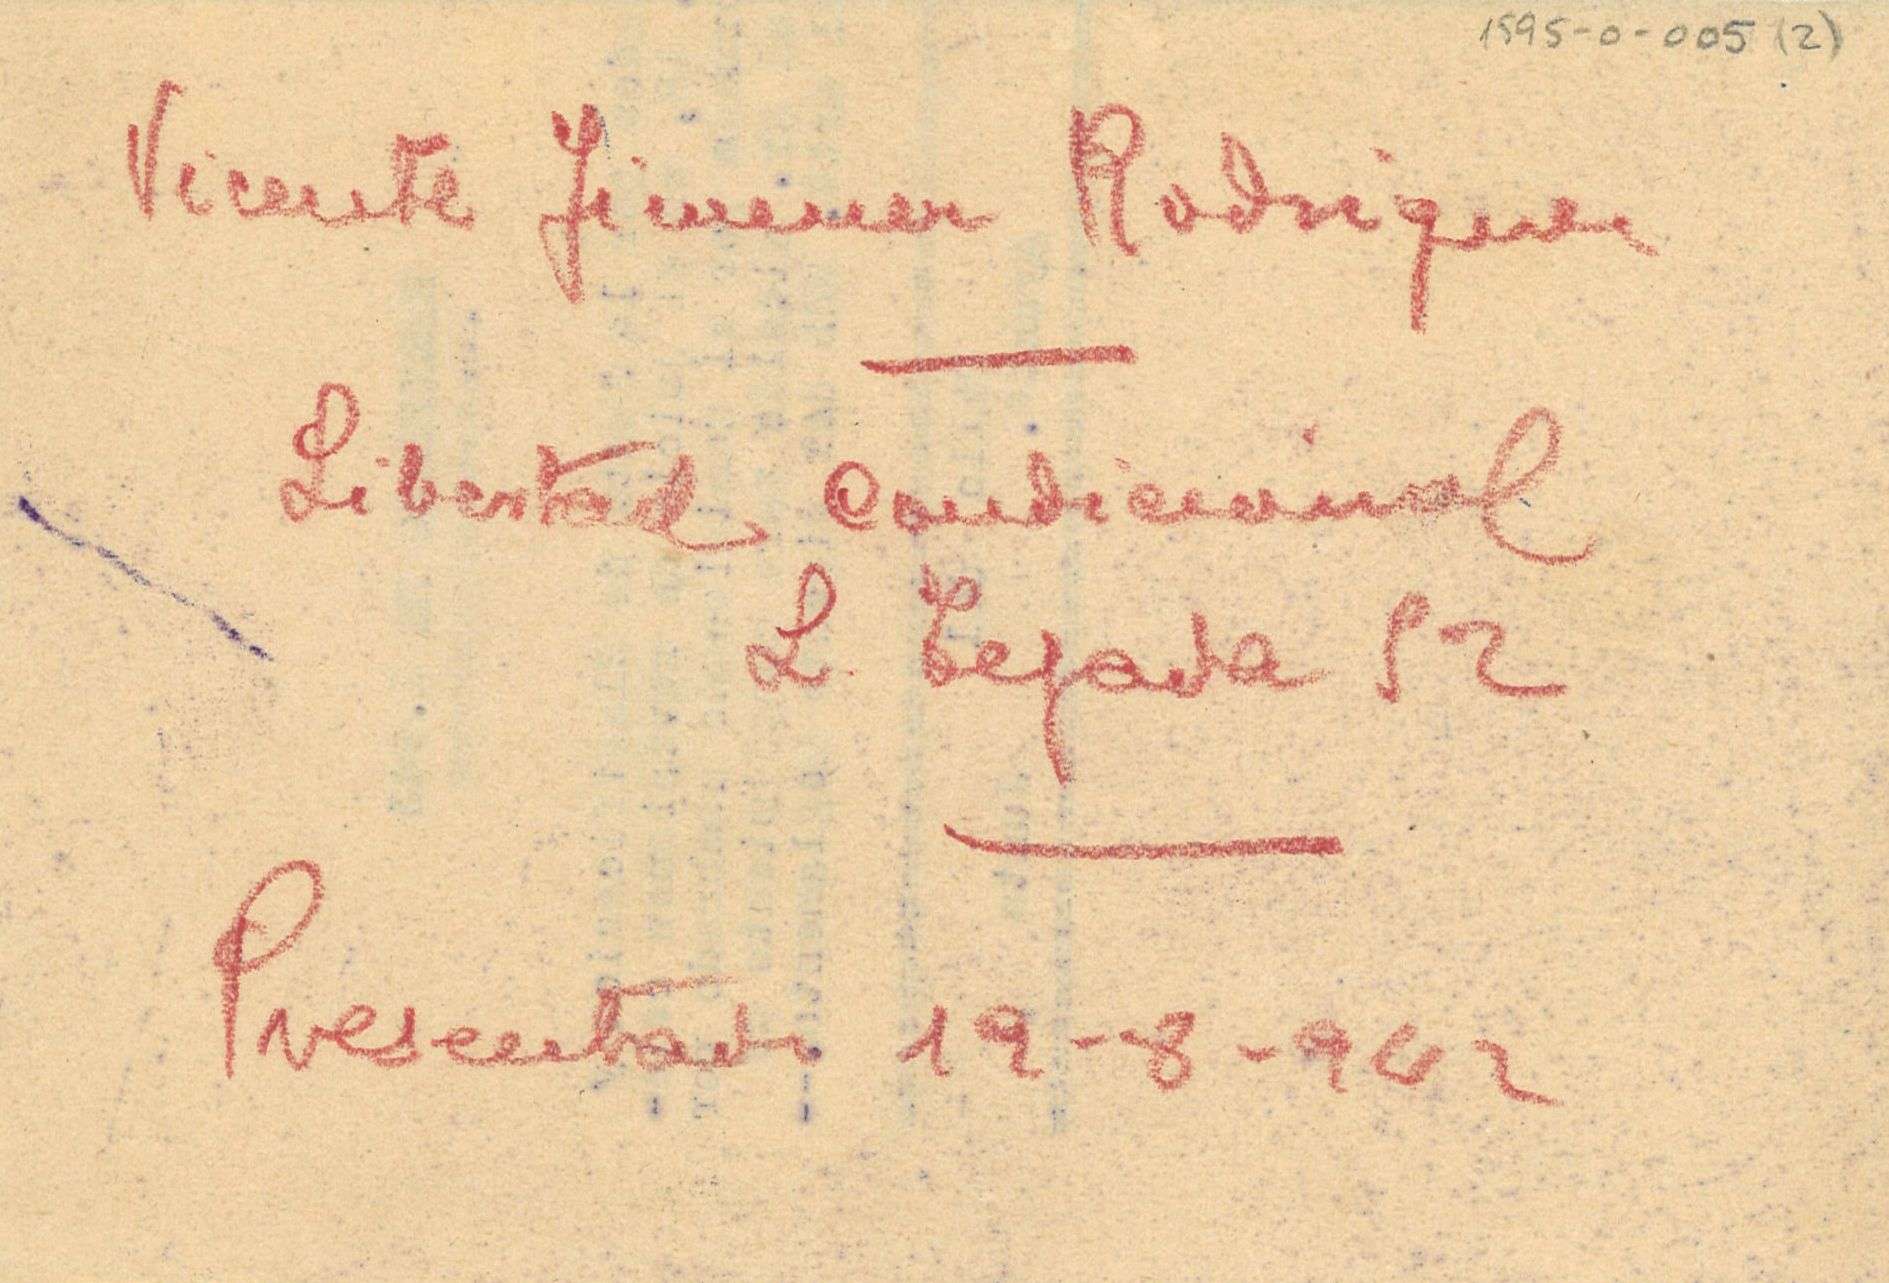 1595-0-005 (2)
Vicente Jimenez Rodriguez
Libertad Condicional
L. Tejada 52
Presentado 19-8-942